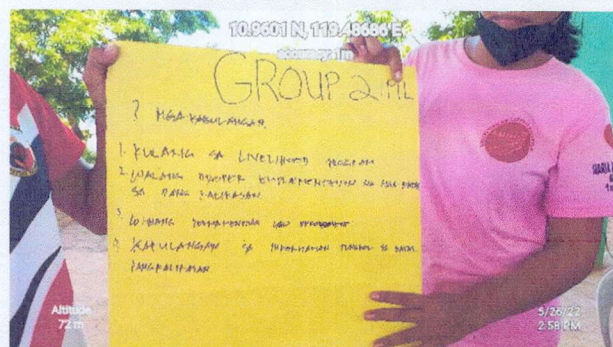 10.9601 N, 119.48686 E
GROUP 2
? MGA KAKULANGAN
1. KULANG SA LIVELIHOOD PROGRAM
2. WALANG PROPER IMPLEMENTATION NG MGA BATAS
SA PANG KALIKASAN
3. WALANG PERMANENTENG LAW
4. KAKULANGAN SA INFORMATION TUNGKOL SA BATAS
PANGKALIKASAN
MARIA
Altitude
72 m
5/26/22
2:58 PM